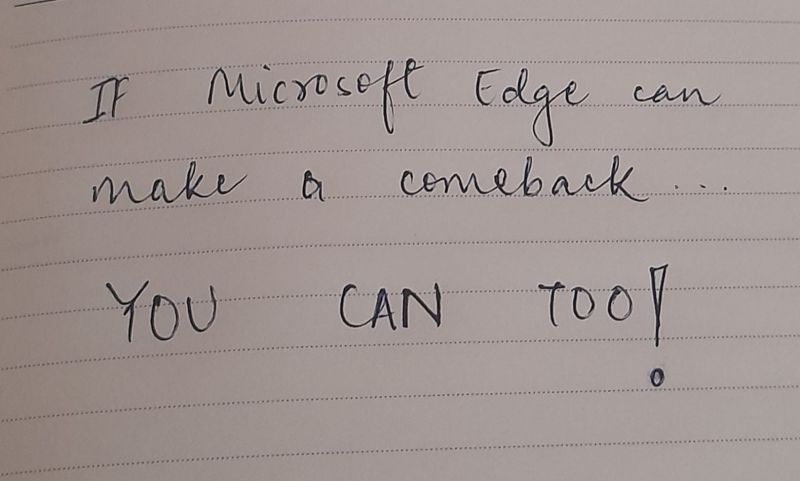 IF Microsoft Edge can
make a comeback...
YOU CAN TOO!